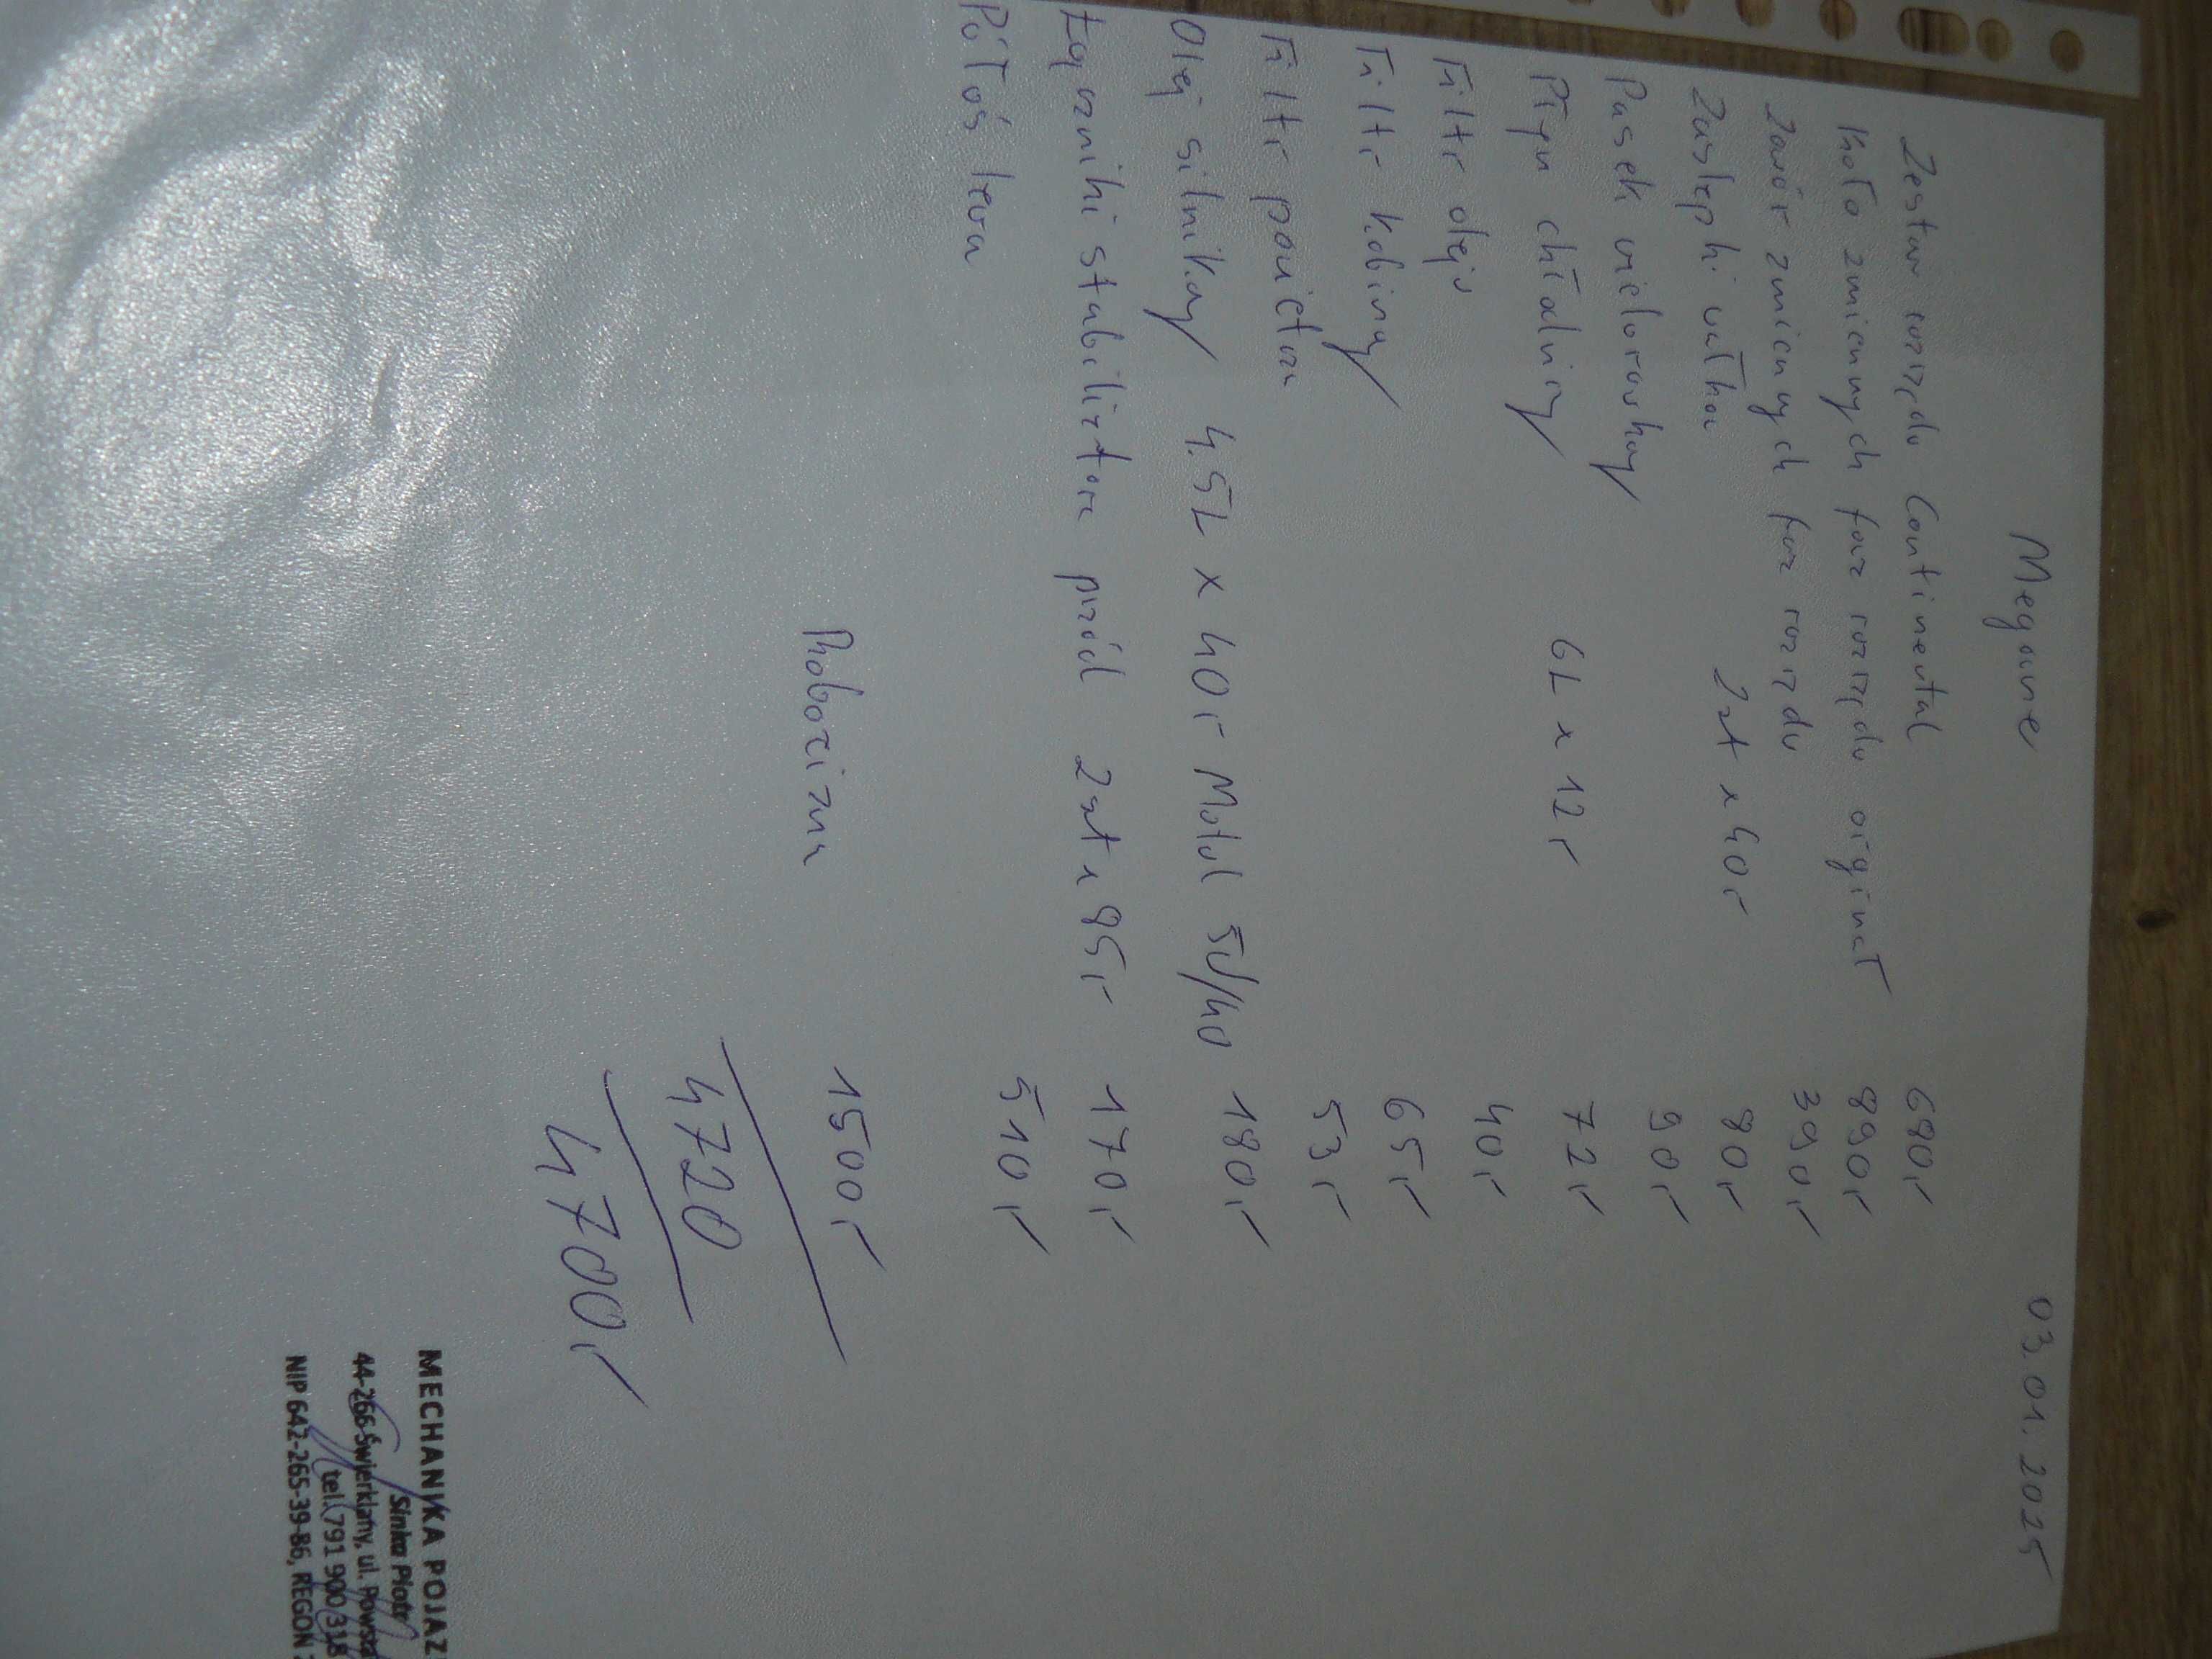 Megane 03.01.2025
Zestaw rozrządu Continental 680,-
Koło zmiennych faz rozrządu orginał 890,-
Zawór zmiennych faz rozrządu 390,-
Zaślepki wałka 2szt x 40,- 80,-
Pasek wielorowkowy 90,-
Płyn chłodniczy 6L x 12,- 72,-
Filtr oleju 40,-
Filtr kabinowy 65,-
Filtr powietrza 53,-
Olej silnikowy 4,5L x 40,- Motul 5W/40 180,-
Łączniki stabilizatora przód 2szt x 85,- 170,-
Półoś lewa 510,-
Robocizna 1500,-
4720
4700,-
MECHANIKA POJAZ
Sinka Piotr
44-266 Świerklany, ul.
tel. 791 900 318
NIP 642-265-39-86, REGON